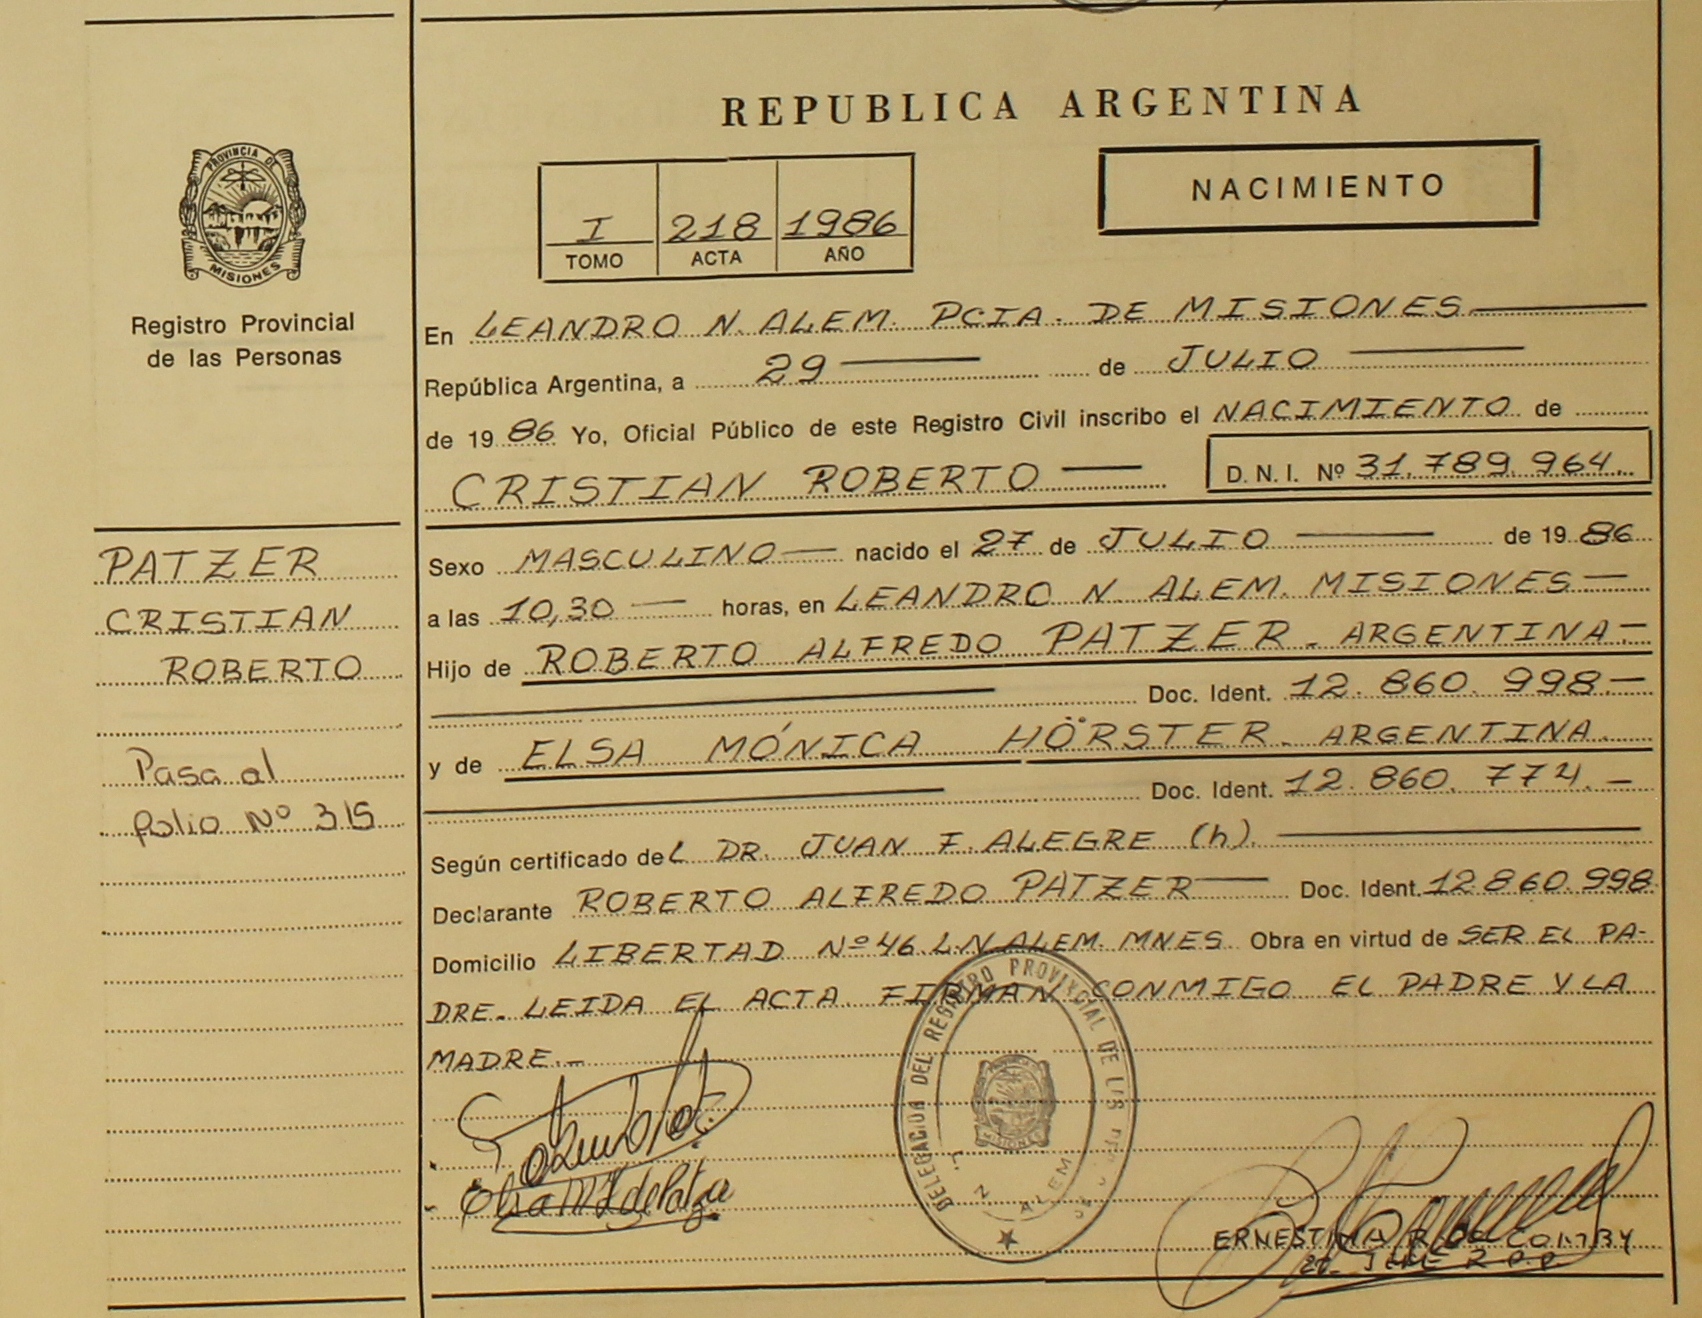 REPUBLICA ARGENTINA
PROVINCIA DE
MISIONES
Registro Provincial
de las Personas
I 218 1986
TOMO ACTA AÑO
NACIMIENTO
En LEANDRO N. ALEM. PCIA. DE MISIONES
República Argentina, a 29 de JULIO
de 1986 Yo, Oficial Público de este Registro Civil inscribo el NACIMIENTO de
CRISTIAN ROBERTO D.N.I. Nº 31.789.964.
PATZER
CRISTIAN
ROBERTO
Pasa al
folio Nº 315
Sexo MASCULINO nacido el 27 de JULIO de 1986
a las 10,30 horas, en LEANDRO N. ALEM. MISIONES
Hijo de ROBERTO ALFREDO PATZER. ARGENTINA
Doc. Ident. 12.860.998.
y de ELSA MÓNICA HÖRSTER. ARGENTINA.
Doc. Ident. 12.860.774.
Según certificado del DR. JUAN F. ALEGRE (h).
Declarante ROBERTO ALFREDO PATZER Doc. Ident. 12.860.998
Domicilio LIBERTAD Nº 46 L.N. ALEM. MNES. Obra en virtud de SER EL PA-
DRE. LEIDA EL ACTA FIRMAN CONMIGO EL PADRE Y LA
MADRE.-
Elsa M H de Patzer
DELEGACION DEL REGISTRO PROVINCIAL DE LAS
MISIONES
L. N. ALEM
ERNESTINA R. DE
JEFE R.P.P.